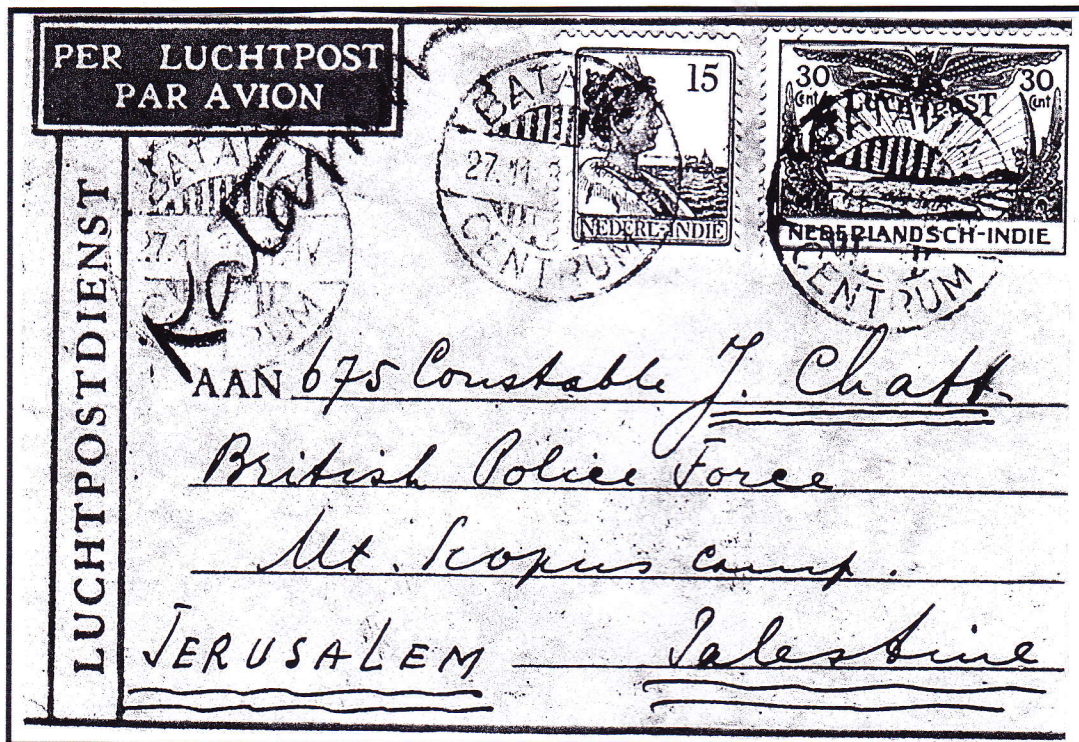 PER LUCHTPOST
PAR AVION
LUCHTPOSTDIENST
BATAVIA
27.11.3
CENTRUM
15
NEDERL-INDIE
30 Cent
30 Cent
LUCHTPOST
NEDERLANDSCH-INDIE
CENTRUM
27.11
AAN 675 Constable J. Chaff.
British Police Force
Mt. Scopus camp.
JERUSALEM Palestine